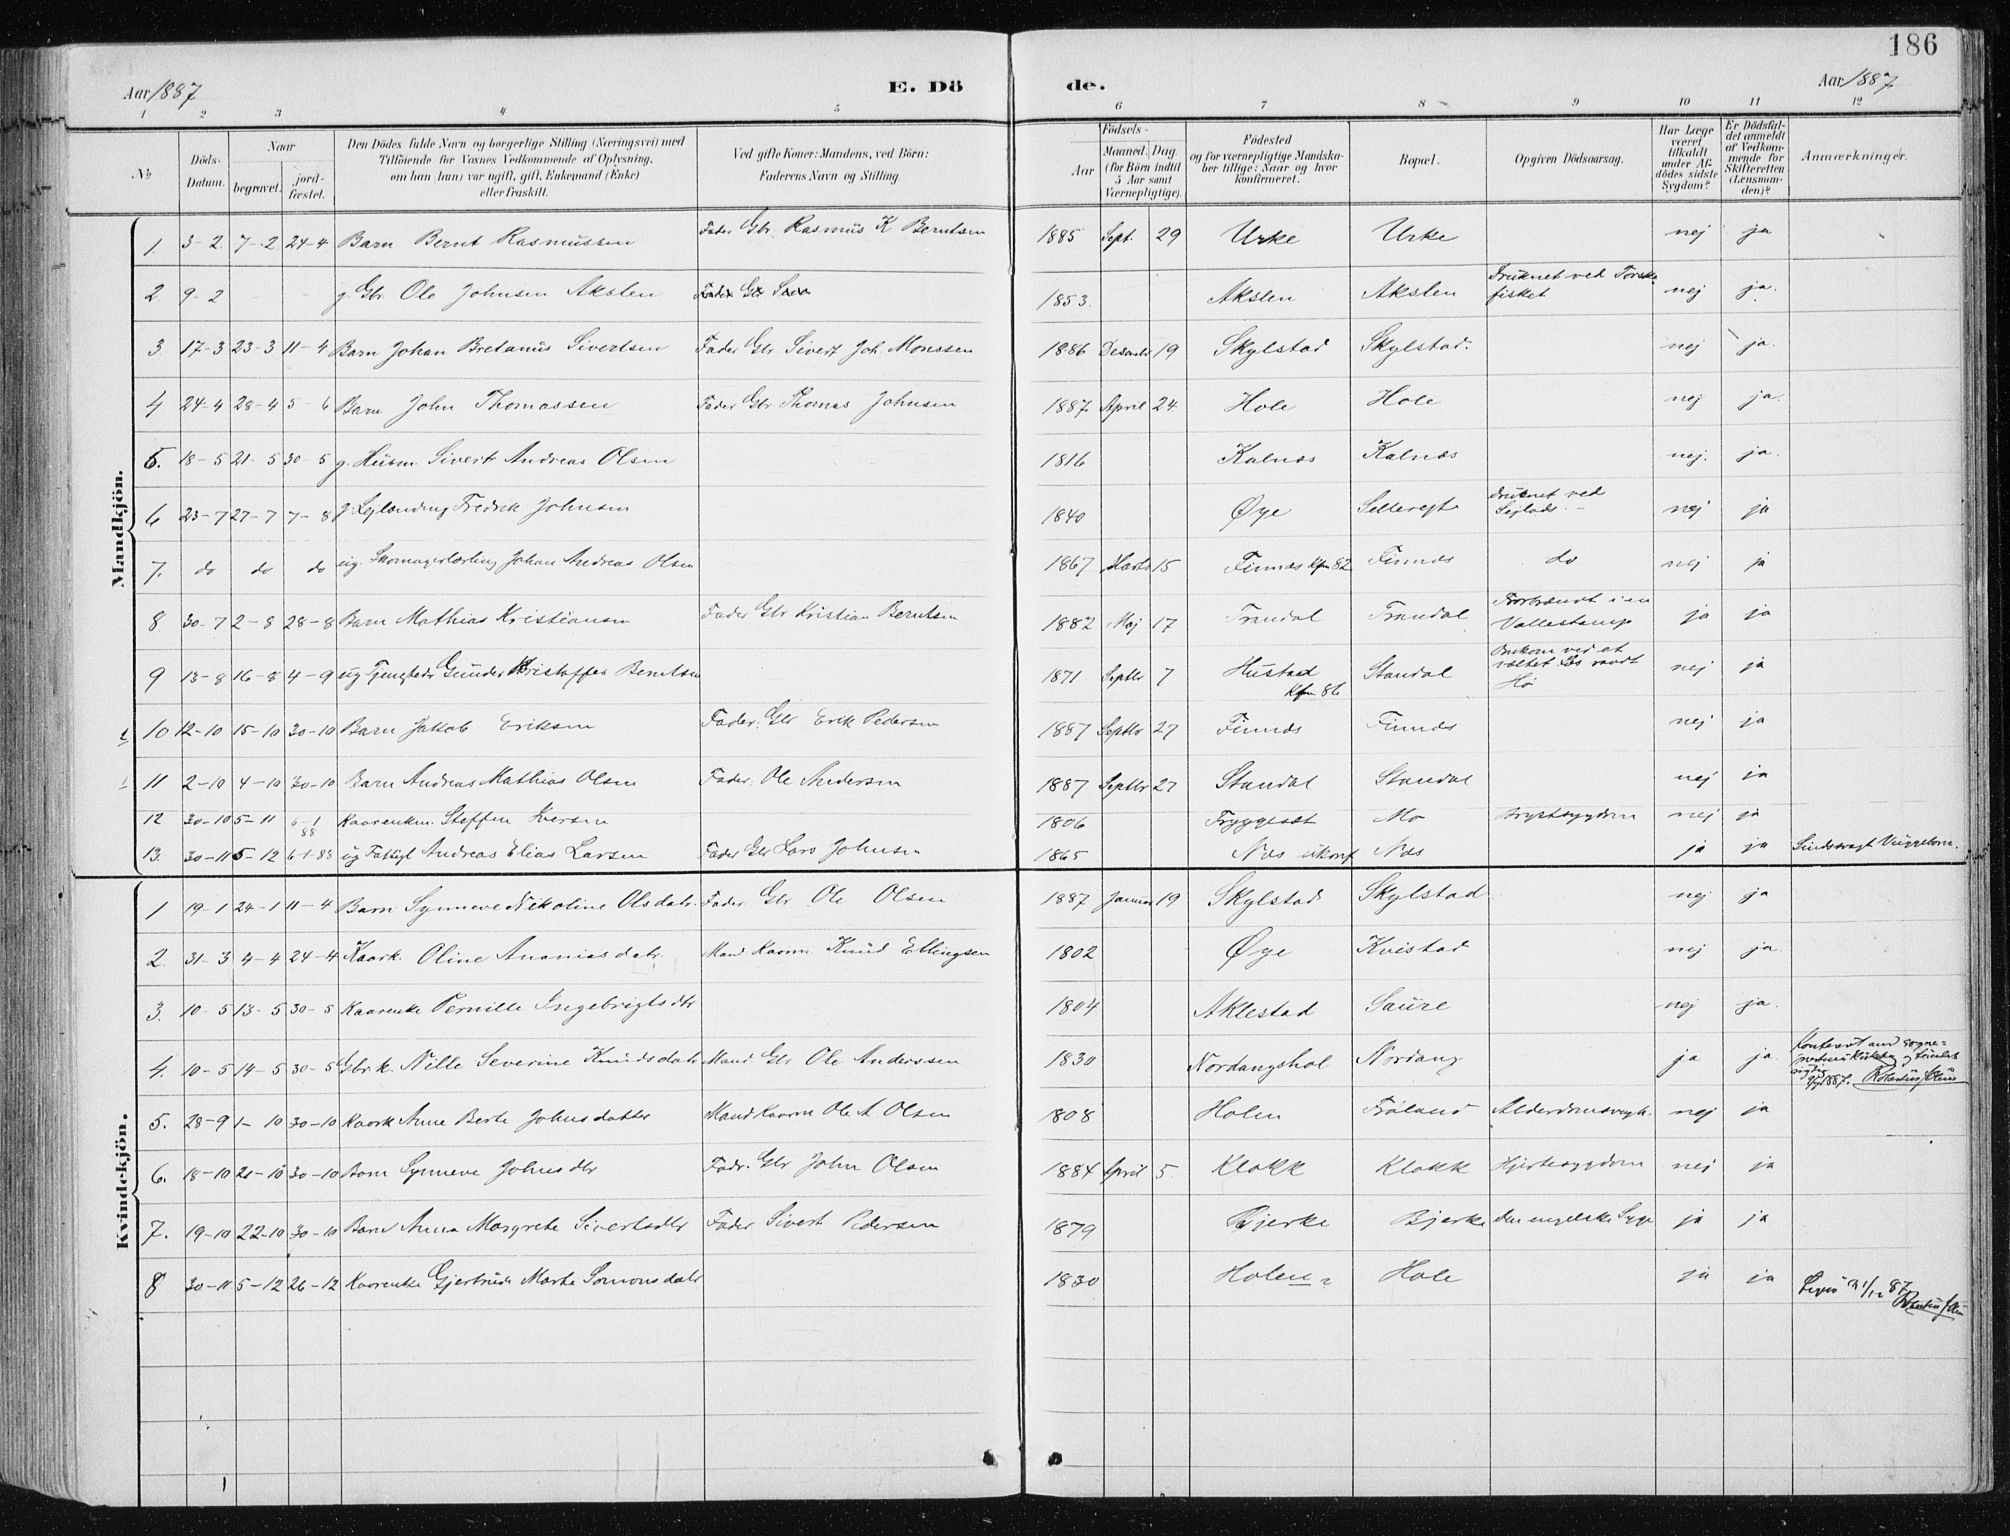 186
Aar 1887 E. Dö de. Aar 1887
1 2 3 4 5 6 7 8 9 10 11 12
No
Döds-Datum.
Naar
begravet.
jord-fæstet.
Den Dödes fulde Navn og borgerlige Stilling (Næringsvei) med
Tilföiende for Voxnes Vedkommende af Oplysning,
om han (hun) var ugift, gift, Enkemand (Enke)
eller fraskilt.
Ved gifte Koner: Mandens, ved Börn:
Faderens Navn og Stilling.
Födsels-
Aar
Maaned. Dag.
(for Börn indtil
5 Aar samt
Værnepligtige).
Födested
og for værnepligtige Mandska-
ber tillige: Naar og hvor
konfirmeret.
Bopæl.
Opgiven Dödsaarsag.
Har Læge
været
tilkaldt
under Af-
dödes sidste
Sygdom?
Er Dödsfal-
det anmeldt
af Vedkom-
mende for
Skifteretten
(Lensman-
den)?
Anmærkninger.
Mandkjön.
1. 3-2 7-2 24-4 Barn Bernt Rasmussen Fader Gbr. Rasmus K Berntsen 1885 Sept. 29 Urke Urke nej ja
2 9-2 g. Gbr. Ole Johnsen Akslen 1853. Akslen Akslen Druknet ved Torske fisket nej ja.
3 17-3 23-3 11-4 Barn Johan Bretanus Sivertsen Fader Gbr. Sivert Joh. Monssen 1886 Decembr 19 Skylstad Skylstad. nej ja.
4 24-4 28-4 5-6 Barn John Thomassen Fader Gbr Thomas Johnsen 1887. April 24. Hole Hole nej ja.
5. 18-5 21-5 30-5 g. Husm. Sivert Andreas Olsen 1816 Kalnæs Kalnæs nej. ja.
6 23-7 27-7 7-8 g. Fredrik Johnsen 1840 Øye druknet ved Sejlads. nej ja
7. do do do ug. Skomagerlærling Johan Andreas Olsen 1867 Marts 15 Finnæs Kfm 82 Finnæs do nej ja
8 30-7 2-8 28-8 Barn Mathias Kristiansen Fader Gbr Kristian Berntsen 1882 Maj 17 Trandal Trandal Forbrændt i en Vallestamp ja ja
9 13-8 16-8 4-9 ug Tjenestedr Gunder Kristoffer Berntsen 1871 Septbr 7 Hustad Kfm 86 Standal Omkom ved et væltet Læs vaadt Hø nej ja
10 12-10 15-10 30-10 Barn Jakob Eriksen Fader: Gbr Erik Pedersen 1887 Septbr 27 Finnæs Finnæs nej ja
11 2-10 4-10 30-10 Barn Andreas Mathias Olsen Fader. Ole Andersen 1887 Septbr 27 Standal Standal nej ja
12 30-10 5-11 6-1 88 Kaarenkm. Steffen Iversen 1806 Tryggeset Mo Brystsygdom nej ja
13. 30-11 5-12 6-1-88 ug Fattigl Andreas Elias Larsen Fader Gbr Lars Johnsen 1865 Næs ukonf Næs ja ja Sindssvagt
Kvindekjön.
1 19-1 24-1 11-4 Barn Synneve Nikoline Olsdatr. Fader Gbr Ole Olsen 1887 Januar 19 Skylstad Skylstad nej ja
2. 31-3 4-4 24-4 Kaark. Oline Ananiasdatr. Mand Kaarm. Knud Ellingsen 1802 Øye Kvistad nej ja.
3. 10-5 13-5 30-5 Kaarenke Pernille Ingebrigtsdtr 1804 Aklestad Saure nej ja.
4. 10-5 14-5 30-5 Gbrk. Nille Severine Knudsdatr Mand. Gbr Ole Anderssen 1830 Nordangshol Nordang ja ja
5. 28-9 1-10 30-10 Kaark Anne Berte Johnsdatter Mand Kaarm Ole A Olsen 1808 Holen Alderdomssvagh. nej ja
6. 18-10 21-10 30-10 Barn Synneve Johnsdtr Fadr. Gbr John Olsen 1884 April 5. Klokk Klokk Hjertesygdom nej ja
7. 19-10 22-10 30-10 Barn Anna Margrete Sivertsdtr Fader Sivert Pedersen 1879 Bjerke Bjerke den engelske Syge ja ja
8 30-11 5-12 26-12 Kaarenke Gjertrude Marte Simonsdatr 1830 Holen Hole ja ja 31/12 87